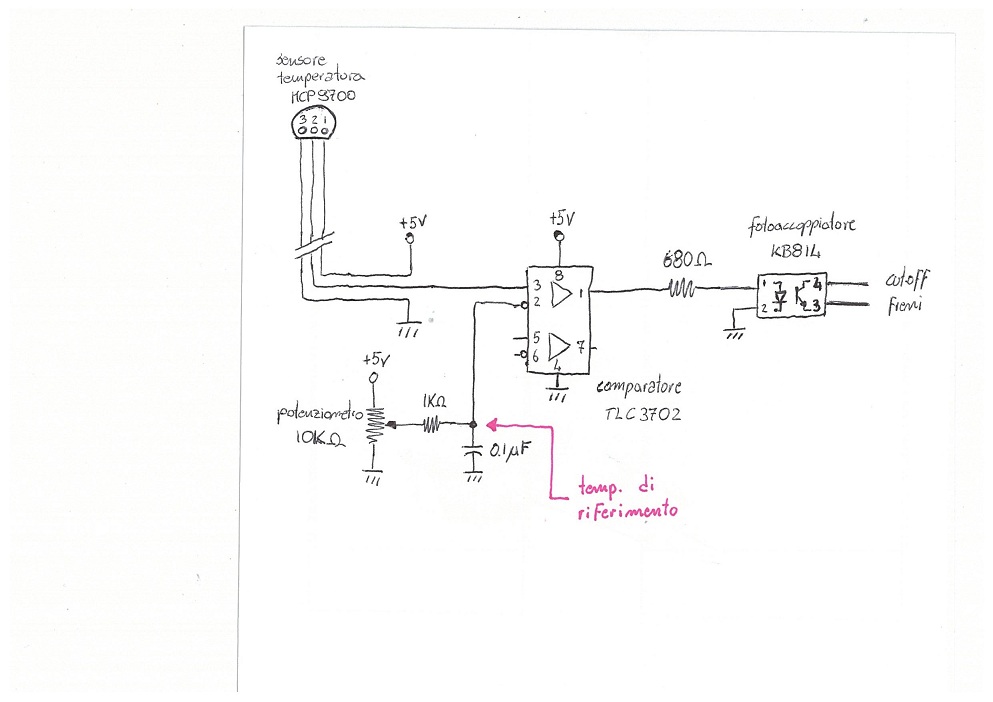 sensore
temperatura
MCP9700
3 2 1
+5V
+5V
fotoaccoppiatore
KB814
680Ω
8
3
2
1
5
6
7
4
1
2
4
3
cutoff
freni
comparatore
TLC3702
+5V
potenziometro
10KΩ
1KΩ
0.1µF
temp. di
riferimento